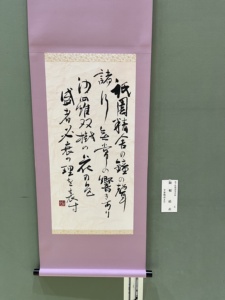 祇園精舎の鐘の聲
諸行無常の響きあり
沙羅双樹の花の色
盛者必衰の理を表す